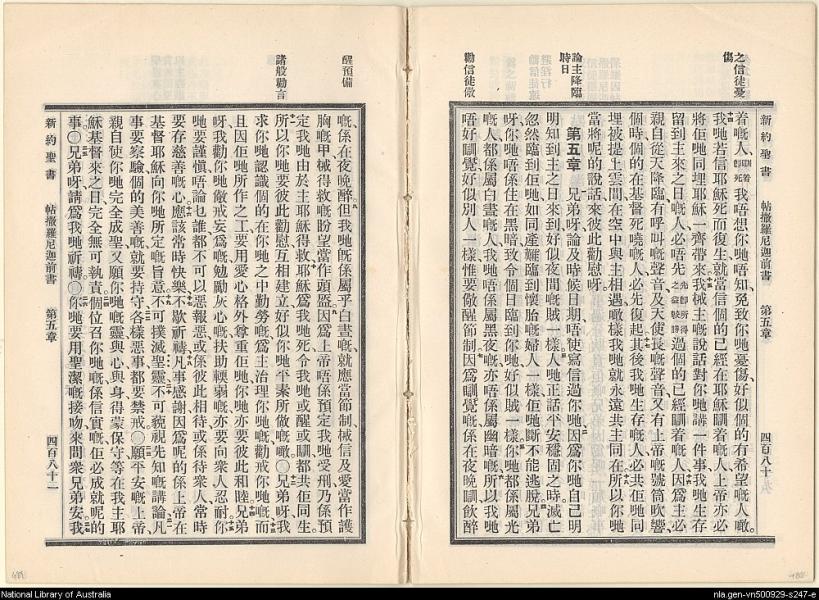 之信徒憂傷
論主降臨時日
勸信徒儆
新約聖書 帖撒羅尼迦前書 第五章 四百八十
着嘅人、我唔想你哋唔知、免致你哋憂傷、好似個的冇希望嘅人噉。
我哋若信耶穌死而復生、就當信個的已經在耶穌瞓着嘅人、上帝亦必
將佢哋同埋耶穌一齊帶來。我械主嘅說話對你哋講一件事、我哋生存
留到主來之日嘅人、必唔先過個的已經瞓着嘅人、因爲主必
親自從天降臨、有呼叫嘅聲音、及天使長嘅聲音、又有上帝嘅號筒吹響、
個時個的在基督死嘵嘅人、必先復起、其後我哋生存嘅人、必共佢哋同
埋被提上雲間、在空中與主相遇、噉樣我哋就永遠共主同在、所以你哋
當將呢的說話來彼此勸慰呀。
第五章 兄弟呀、論及時候日期、唔使寫信過你哋、因爲你哋自己明
明知到主之日來到、好似夜間嘅賊一樣、人哋正話平安穩固之時、滅亡
忽然臨到佢哋、如同產難臨到懷胎嘅婦人一樣、佢哋斷不能逃脫、兄弟
呀、你哋唔係住在黑暗、致令個日臨到你哋好似賊一樣、你哋都係屬光
嘅人、都係屬白晝嘅人、我哋唔係屬黑夜嘅、亦唔係屬幽暗嘅、所以我哋
唔好瞓覺好似別人一樣、惟要儆醒節制、因爲瞓覺嘅係在夜晚瞓、飲醉
醒預備
諸般勸言
嘅、係在夜晚醉、但我哋旣係屬乎白晝嘅、就應當節制、械信及愛當作護
胸嘅甲、械得救嘅盼望當作頭盔、因爲上帝唔係預定我哋受刑、乃係預
定我哋由於主耶穌得救、耶穌爲我哋死、令我哋或醒或瞓、都共佢同生、
所以你哋要彼此勸慰、互相建立、好似你哋平素所做嘅噉。○兄弟呀、我
求你哋認識個的在你哋之中勤勞嘅、爲主治理你哋嘅、勸戒你哋嘅、而
且因佢哋所作之工、要用愛心格外尊重佢哋、你哋亦要彼此和睦、兄弟
呀、我勸你哋儆戒妄爲嘅、勉勵灰心嘅、扶助輭弱嘅、亦要向衆人忍耐、你
哋要謹愼、唔論乜誰都不可以惡報惡、或係彼此相待、或係待衆人、常時
要存慈善嘅心、應該常時快樂、不歇祈禱、凡事感謝、因爲呢的係上帝在
基督耶穌向你哋所定嘅旨意、不可撲滅聖靈、不可藐視先知嘅講論、凡
事要察驗、個的美善嘅、就要持守、各樣惡事、都要禁戒。○願平安嘅上帝、
親自使你哋完全成聖、又願你哋嘅靈與心與身、得蒙保守、等在我主耶
穌基督來之日、完全無可執責、個位召你哋嘅係信實嘅、佢必成就呢的
事。○兄弟呀、請爲我哋祈禱。○你哋要用聖潔嘅接吻來問衆兄弟安、我
新約聖書 帖撒羅尼迦前書 第五章 四百八十一
National Library of Australia
nla.gen-vn500929-s247-e